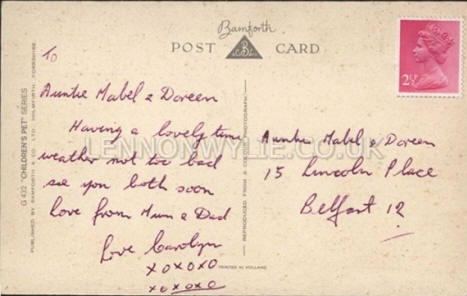 Bamforth
POST CARD
2½
TO
Auntie Mabel & Doreen
Having a lovely time
weather not too bad
see you both soon
love from Mum & Dad
Love Carolyn
xoxoxo
xoxoxo
Auntie Mabel & Doreen
15 Lincoln Place
Belfast 12
LENNONWYLIE.CO.UK
G 432 "CHILDREN'S PET" SERIES
PUBLISHED BY BAMFORTH & CO. LTD. HOLMFIRTH YORKSHIRE
REPRODUCED FROM A COLOUR PHOTOGRAPH
PRINTED IN HOLLAND